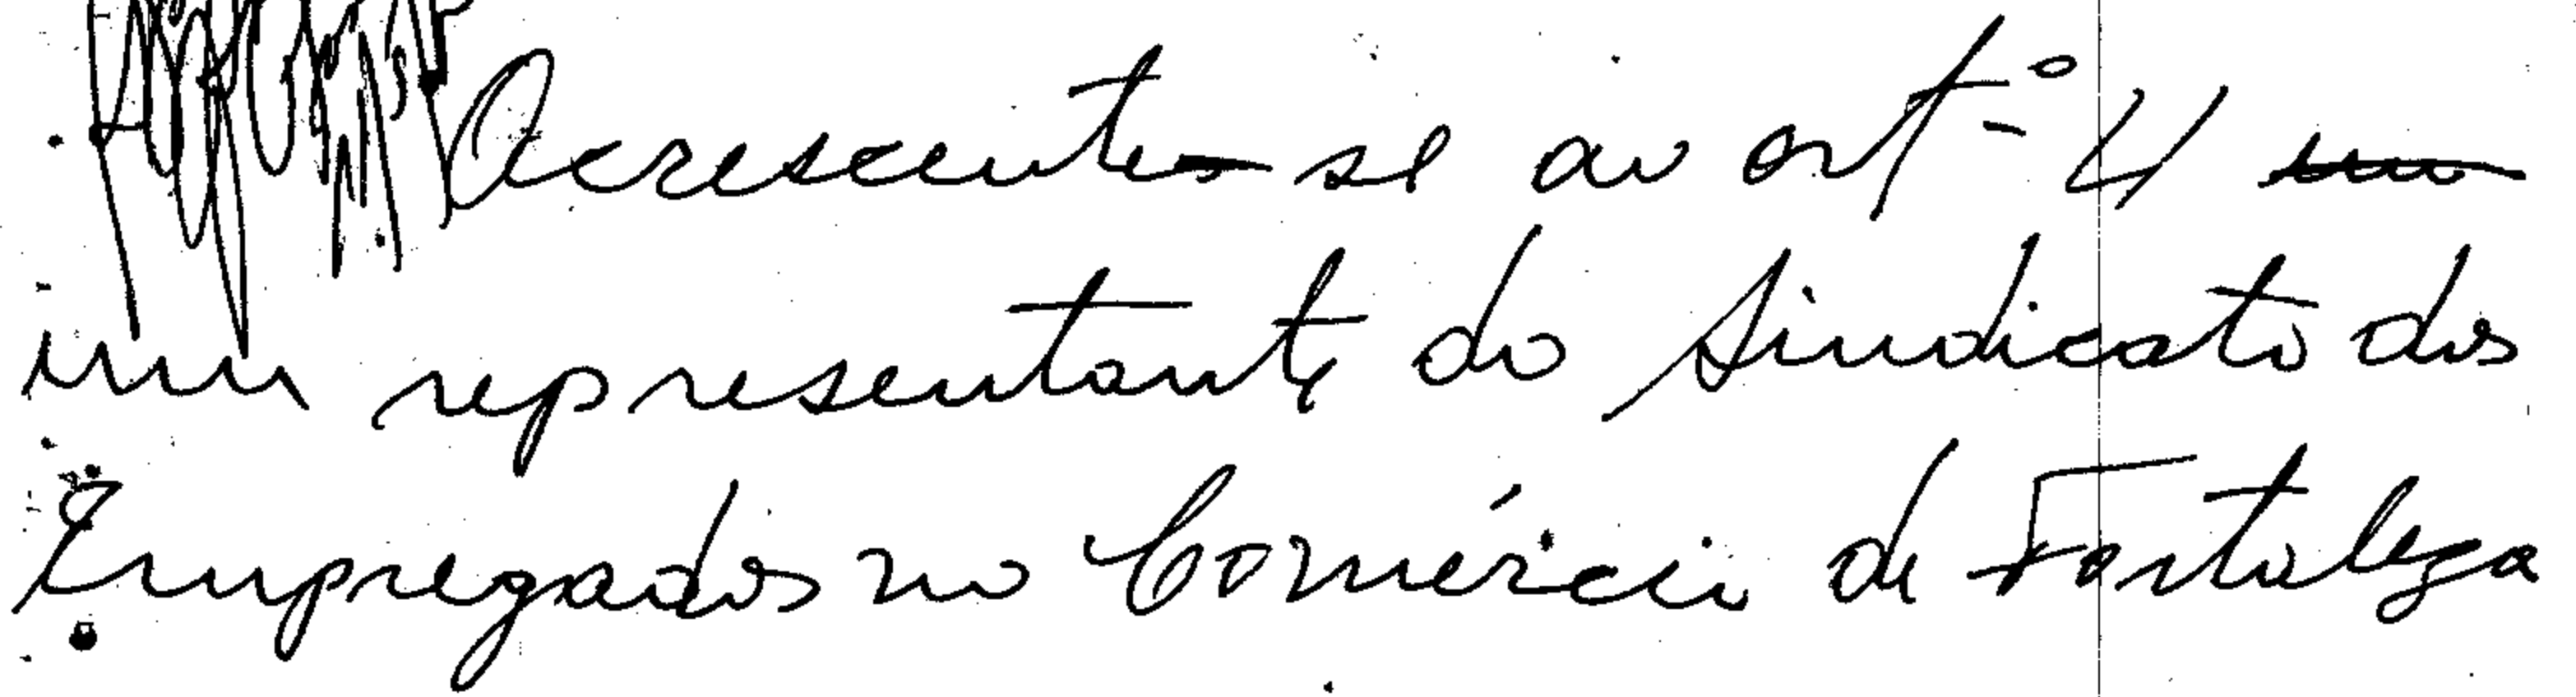 Acrescente-se ao artº 4
um representante do Sindicato dos
Empregados no Comércio de Fortaleza